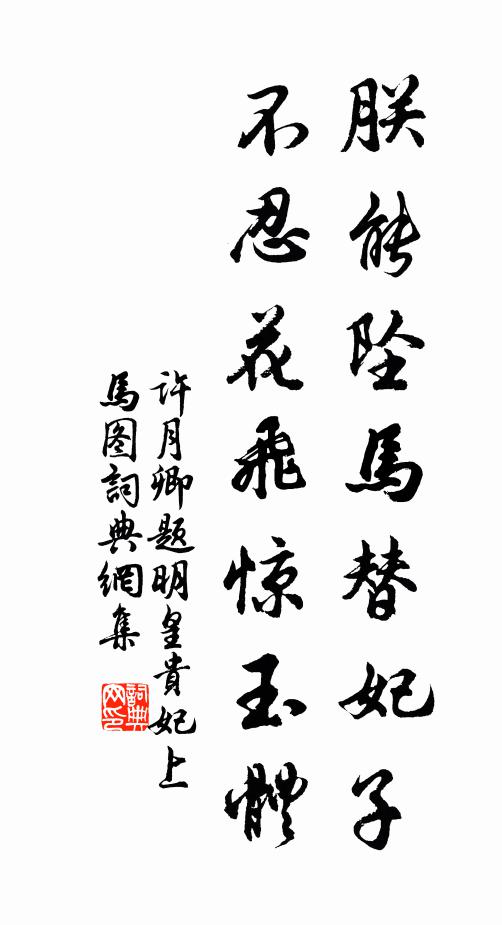 朕能坠馬替妃子
不忍花飛惊玉體
许月卿题明皇貴妃上
馬图詞典網集
詞典
网印